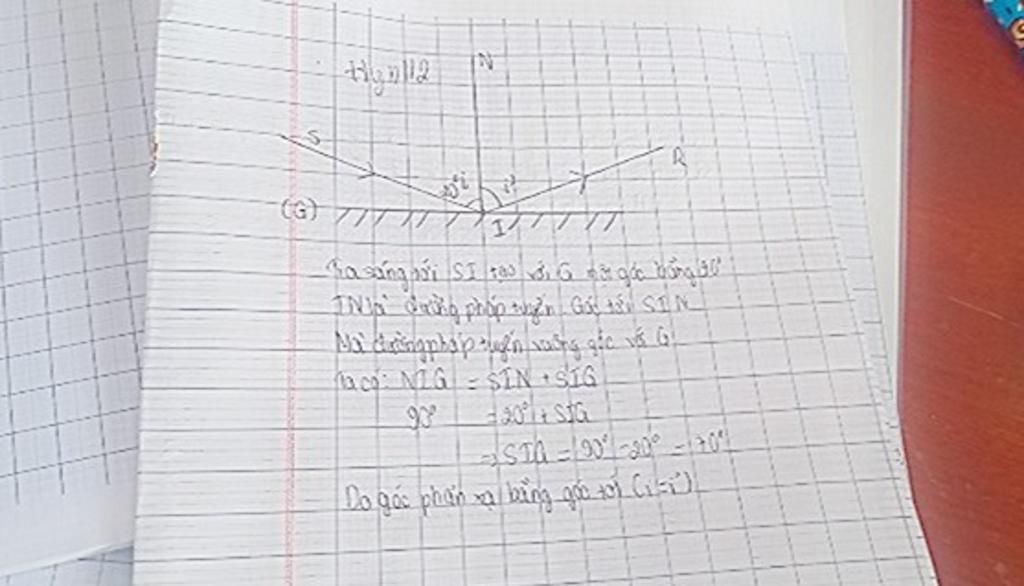 N
S
R
20° i
i'
(G)
I
Tia sáng tới SI tạo với G một góc bằng 20°
IN là đường pháp tuyến. Góc tới SIN
Mà đường pháp tuyến vuông góc với G
Ta có: NIG = SIN + SIG
90° = 20° + SIG
→ SIG = 90° - 20° = 70°
Do góc phản xạ bằng góc tới (i=i')